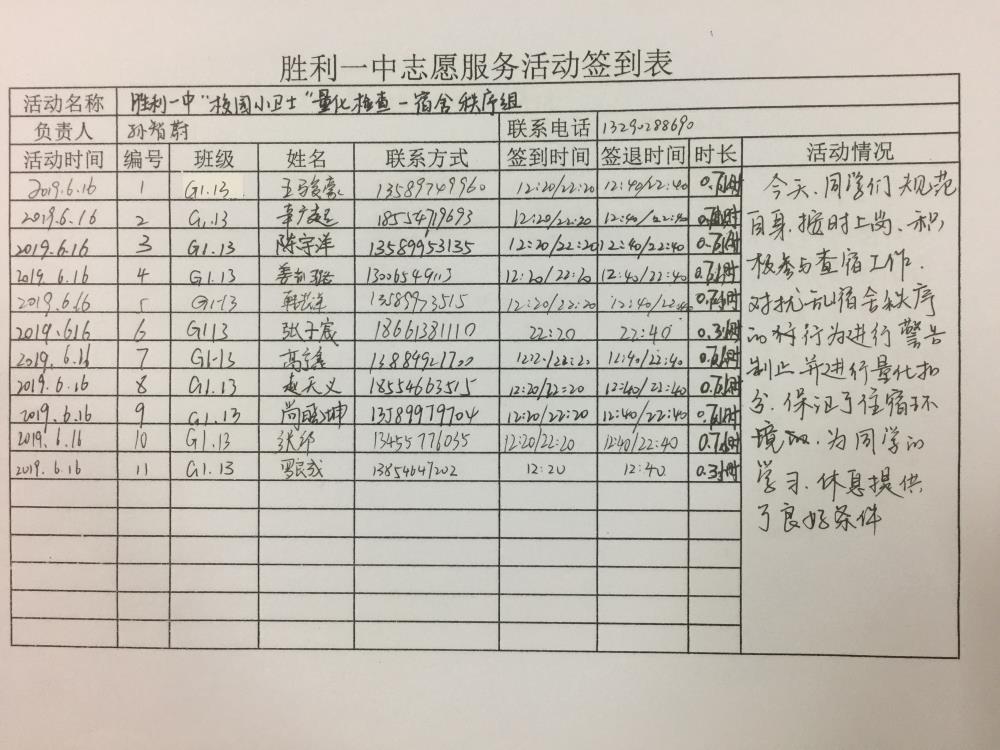 胜利一中志愿服务活动签到表
活动名称 胜利一中"校园小卫士"量化检查-宿舍秩序组
负责人 孙智蔚 联系电话 13290288690
活动时间 编号 班级 姓名 联系方式 签到时间 签退时间 时长 活动情况
2019.6.16 1 G1.13 13589749960 12:20/22:20 12:40/22:40 0.7小时
2019.6.16 2 G1.13 18554719693 12:20/22:20 12:40/22:40
2019.6.16 3 G1.13 陈宇洋 13589953135 12:20/22:20 12:40/22:40 0.7小时
2019.6.16 4 G1.13 12:20/22:20 12:40/22:40 0.7小时
2019.6.16 5 G1.13 12:20/22:20 12:40/22:40 0.7小时
2019.616 6 G113 张子宸 18661381110 22:20 22:40 0.3小时
2019.6.16 7 G1.13 13884921700 12:40/22:40 0.7小时
2019.6.16 8 G1.13 赵天义 18554663515 12:20/22:20 0.7小时
2019.6.16 9 G1.13 13589979704 12:20/22:20 12:40/22:40 0.7小时
2019.6.16 10 G1.13 13455776035 12:20/22:20 12:40/22:40 0.7小时
2019.6.16 11 G1.13 13854647202 12:20 12:40 0.3小时
今天、同学们规范
自身、按时上岗、积
极参与查宿工作.
对扰乱宿舍秩序
的行为进行警告
制止并进行量化扣
分.保证了住宿环
境的、为同学的
学习、休息提供
了良好条件